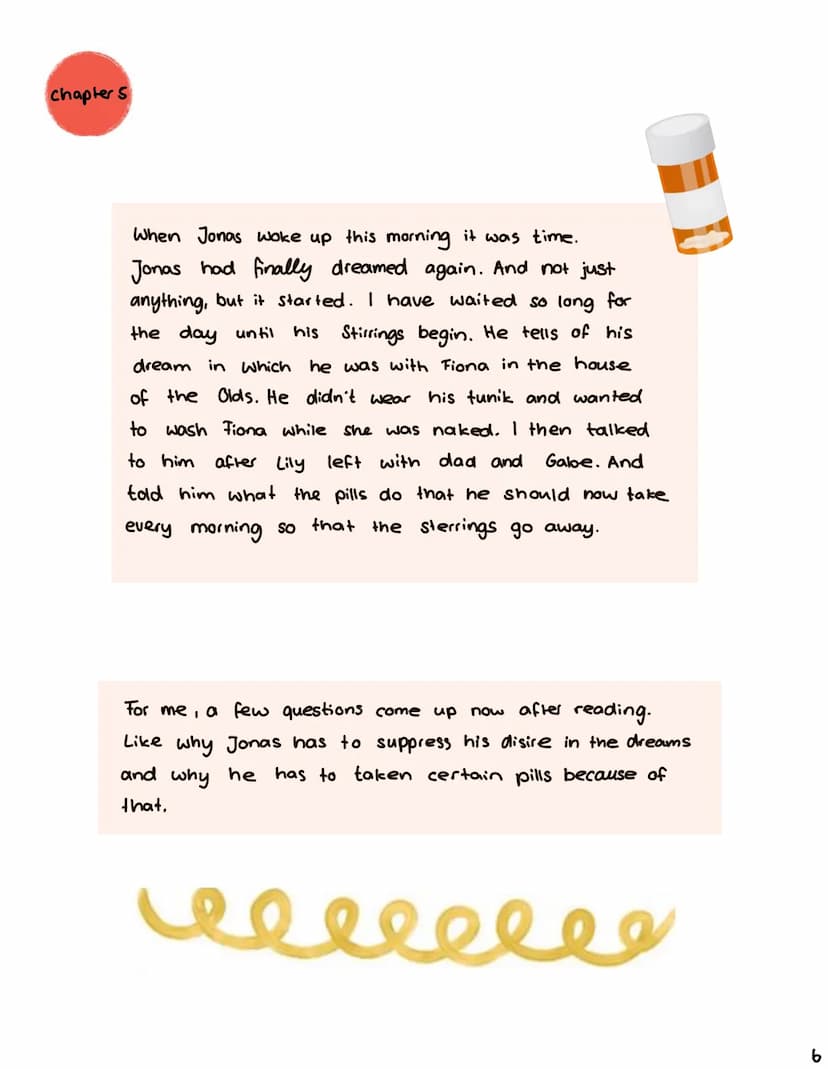 Chapter 5
When Jonas woke up this morning it was time.
Jonas had finally dreamed again. And not just
anything, but it started. I have waited so long for
the day until his Stirrings begin. He tells of his
dream in which he was with Fiona in the house
of the Olds. He didn't wear his tunik and wanted
to wash Fiona while she was naked. I then talked
to him after Lily left with dad and Gabe. And
told him what the pills do that he should now take
every morning so that the sterrings go away.
For me, a few questions come up now after reading.
Like why Jonas has to suppress his disire in the dreams
and why he has to taken certain pills because of
that.
6